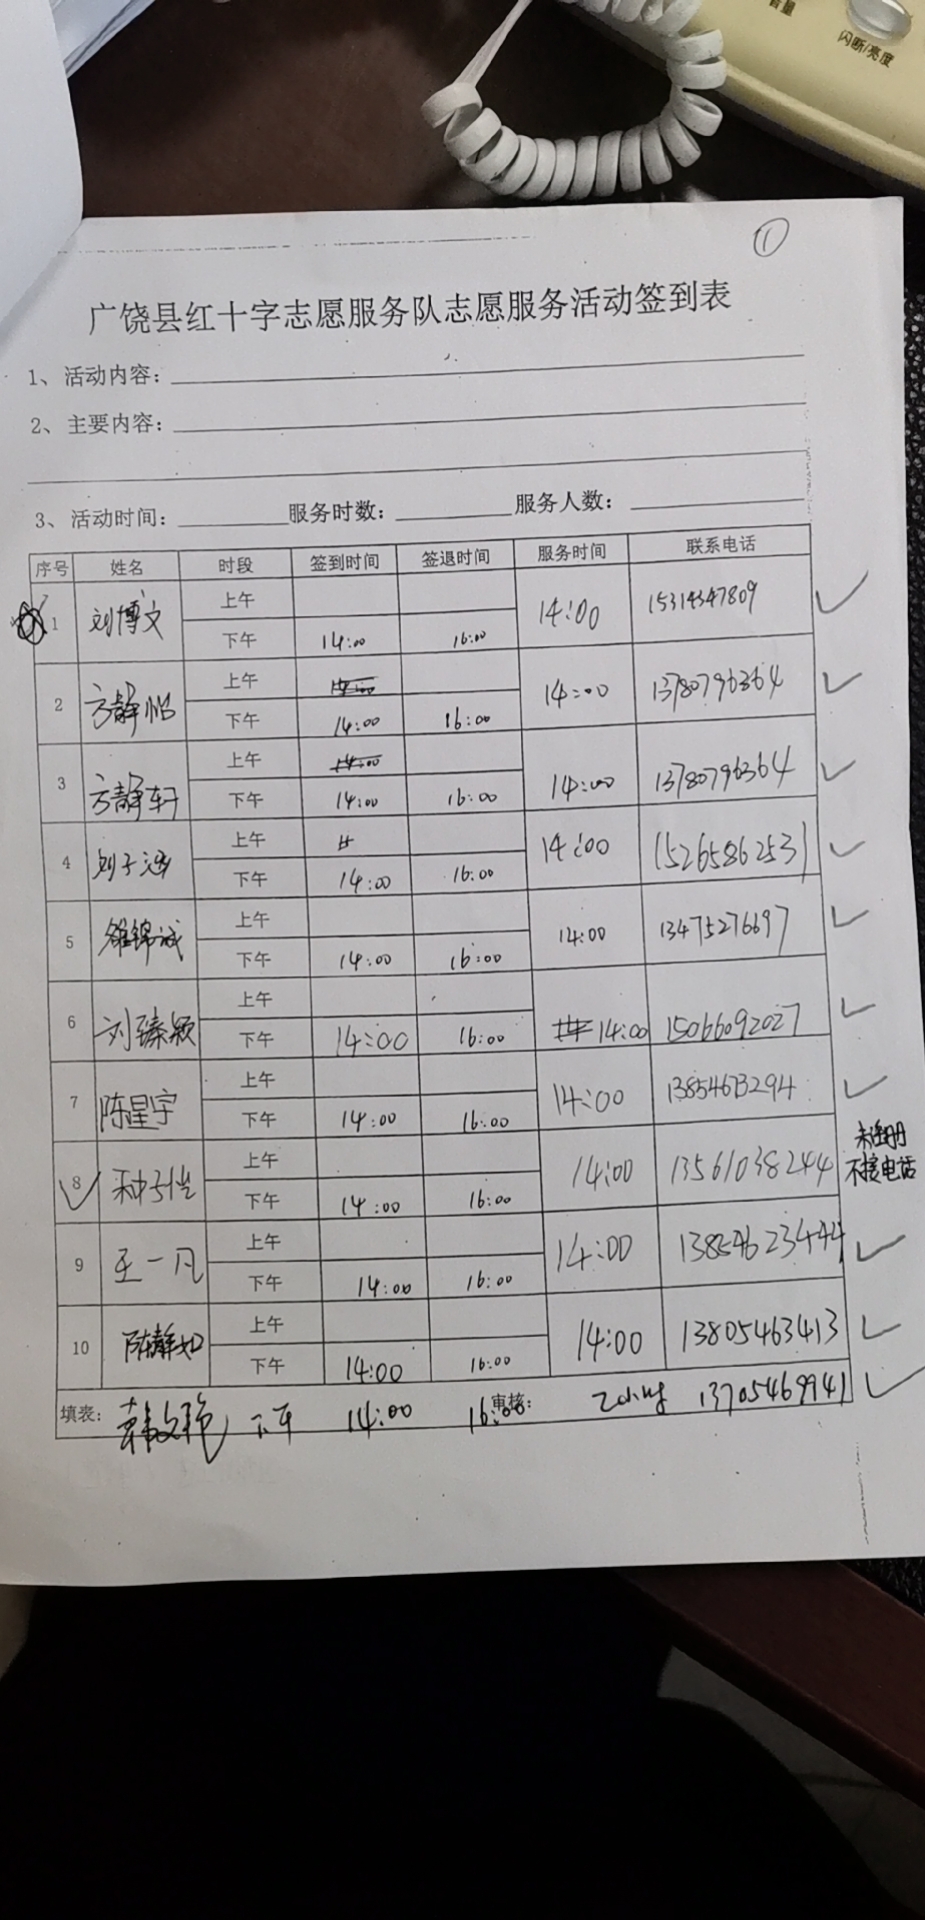 音量
闪断/亮度
①
广饶县红十字志愿服务队志愿服务活动签到表
1、活动内容：
2、主要内容：
3、活动时间： 服务时数： 服务人数：
序号 姓名 时段 签到时间 签退时间 服务时间 联系电话
1 刘博文 上午 14:00 15314347809
下午 14:00 16:00
2 方静怡 上午 14:00 14:00 13780796364
下午 14:00 16:00
3 方静轩 上午 14:00 14:00 13780796364
下午 14:00 16:00
4 刘子涵 上午 14:00 15265862531
下午 14:00 16:00
5 锦诚 上午 14:00 13475276697
下午 14:00 16:00
6 刘臻颖 上午
下午 14:00 16:00 14:00 15066092027
7 陈星宇 上午 14:00 13854673294
下午 14:00 16:00
8 上午 14:00 13561038244 未注册
下午 14:00 16:00 不接电话
9 王一凡 上午 14:00 13854623444
下午 14:00 16:00
10 陈静如 上午 14:00 13805463413
下午 14:00 16:00
填表： 韩文艳 下午 14:00 16:00 审核： 2小时 13705469941